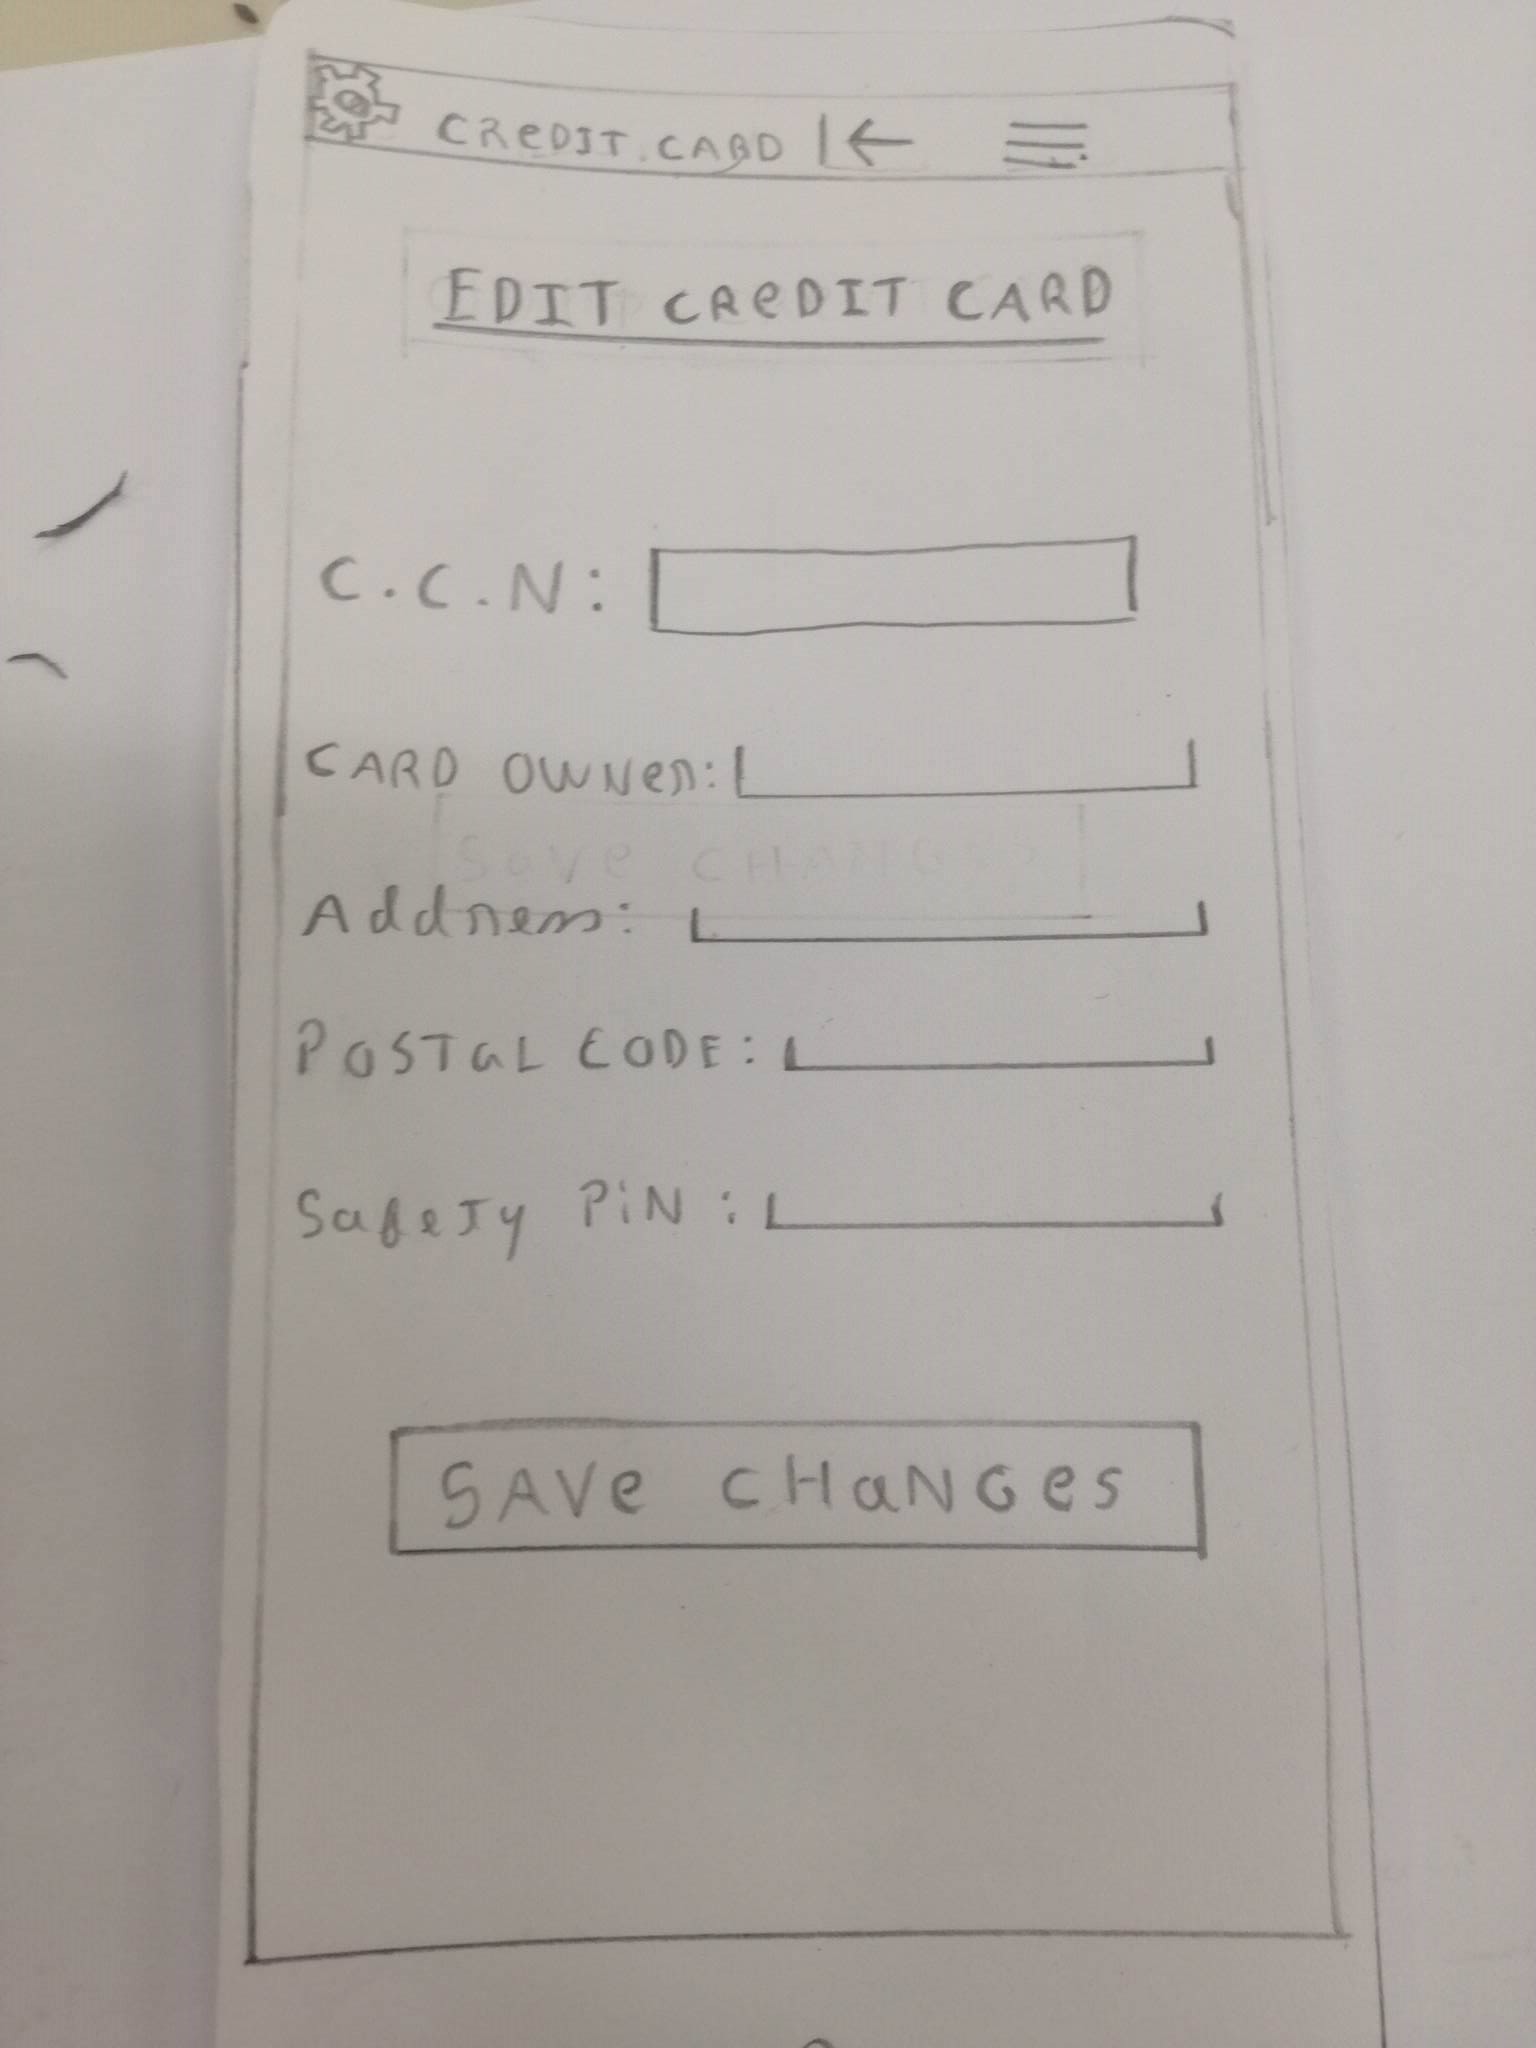 CReDIT.CARD
EDIT CReDIT CARD
C.C.N:
CARD OWNer:
Save CHANGes
Address:
POSTaL CODE:
Safety PiN:
SAVe CHaNGes